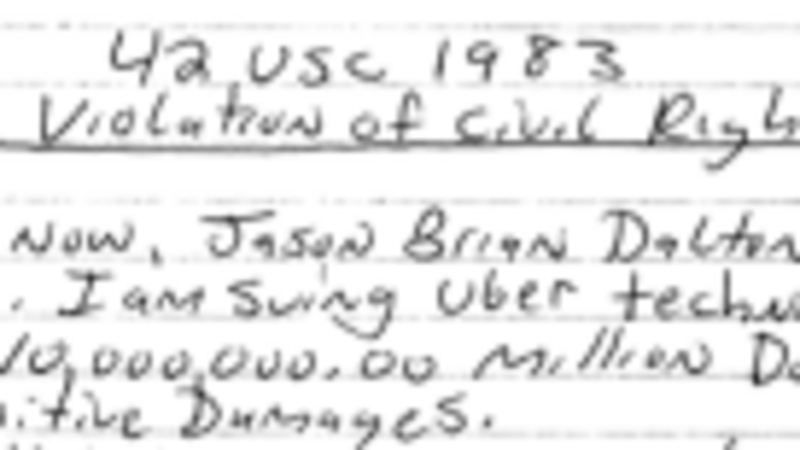 42 USC 1983
Violation of Civil Righ
Now, Jason Brian Dalton
. I am suing Uber techn
10,000,000.00 Million Do
nitive Damages.